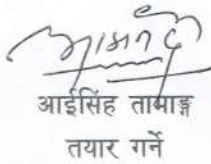 आईसिंह तामाङ्ग
तयार गर्ने